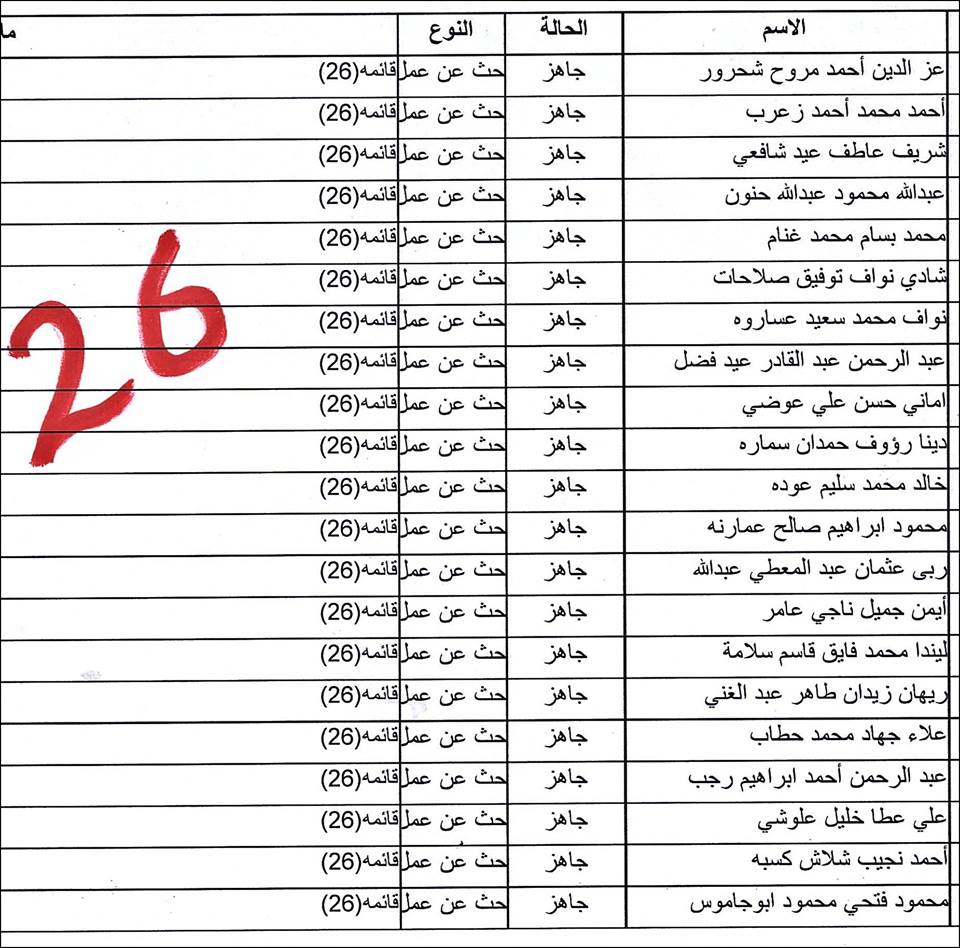 الاسم الحالة النوع ما
عز الدين أحمد مروح شحرور جاهز حث عن عمل قائمه(26)
أحمد محمد أحمد زعرب جاهز حث عن عمل قائمه(26)
شريف عاطف عيد شافعي جاهز حث عن عمل قائمه(26)
عبدالله محمود عبدالله حنون جاهز حث عن عمل قائمه(26)
محمد بسام محمد غنام جاهز حث عن عمل قائمه(26)
شادي نواف توفيق صلاحات جاهز حث عن عمل قائمه(26)
نواف محمد سعيد عساروه جاهز حث عن عمل قائمه(26)
عبد الرحمن عبد القادر عيد فضل جاهز حث عن عمل قائمه(26)
اماني حسن علي عوضي جاهز حث عن عمل قائمه(26)
دينا رؤوف حمدان سماره جاهز حث عن عمل قائمه(26)
خالد محمد سليم عوده جاهز حث عن عمل قائمه(26)
محمود ابراهيم صالح عمارنه جاهز حث عن عمل قائمه(26)
ربى عثمان عبد المعطي عبدالله جاهز حث عن عمل قائمه(26)
أيمن جميل ناجي عامر جاهز حث عن عمل قائمه(26)
ليندا محمد فايق قاسم سلامة جاهز حث عن عمل قائمه(26)
ريهان زيدان طاهر عبد الغني جاهز حث عن عمل قائمه(26)
علاء جهاد محمد حطاب جاهز حث عن عمل قائمه(26)
عبد الرحمن أحمد ابراهيم رجب جاهز حث عن عمل قائمه(26)
علي عطا خليل علوشي جاهز حث عن عمل قائمه(26)
أحمد نجيب شلاش كسبه جاهز حث عن عمل قائمه(26)
محمود فتحي محمود ابوجاموس جاهز حث عن عمل قائمه(26)
26